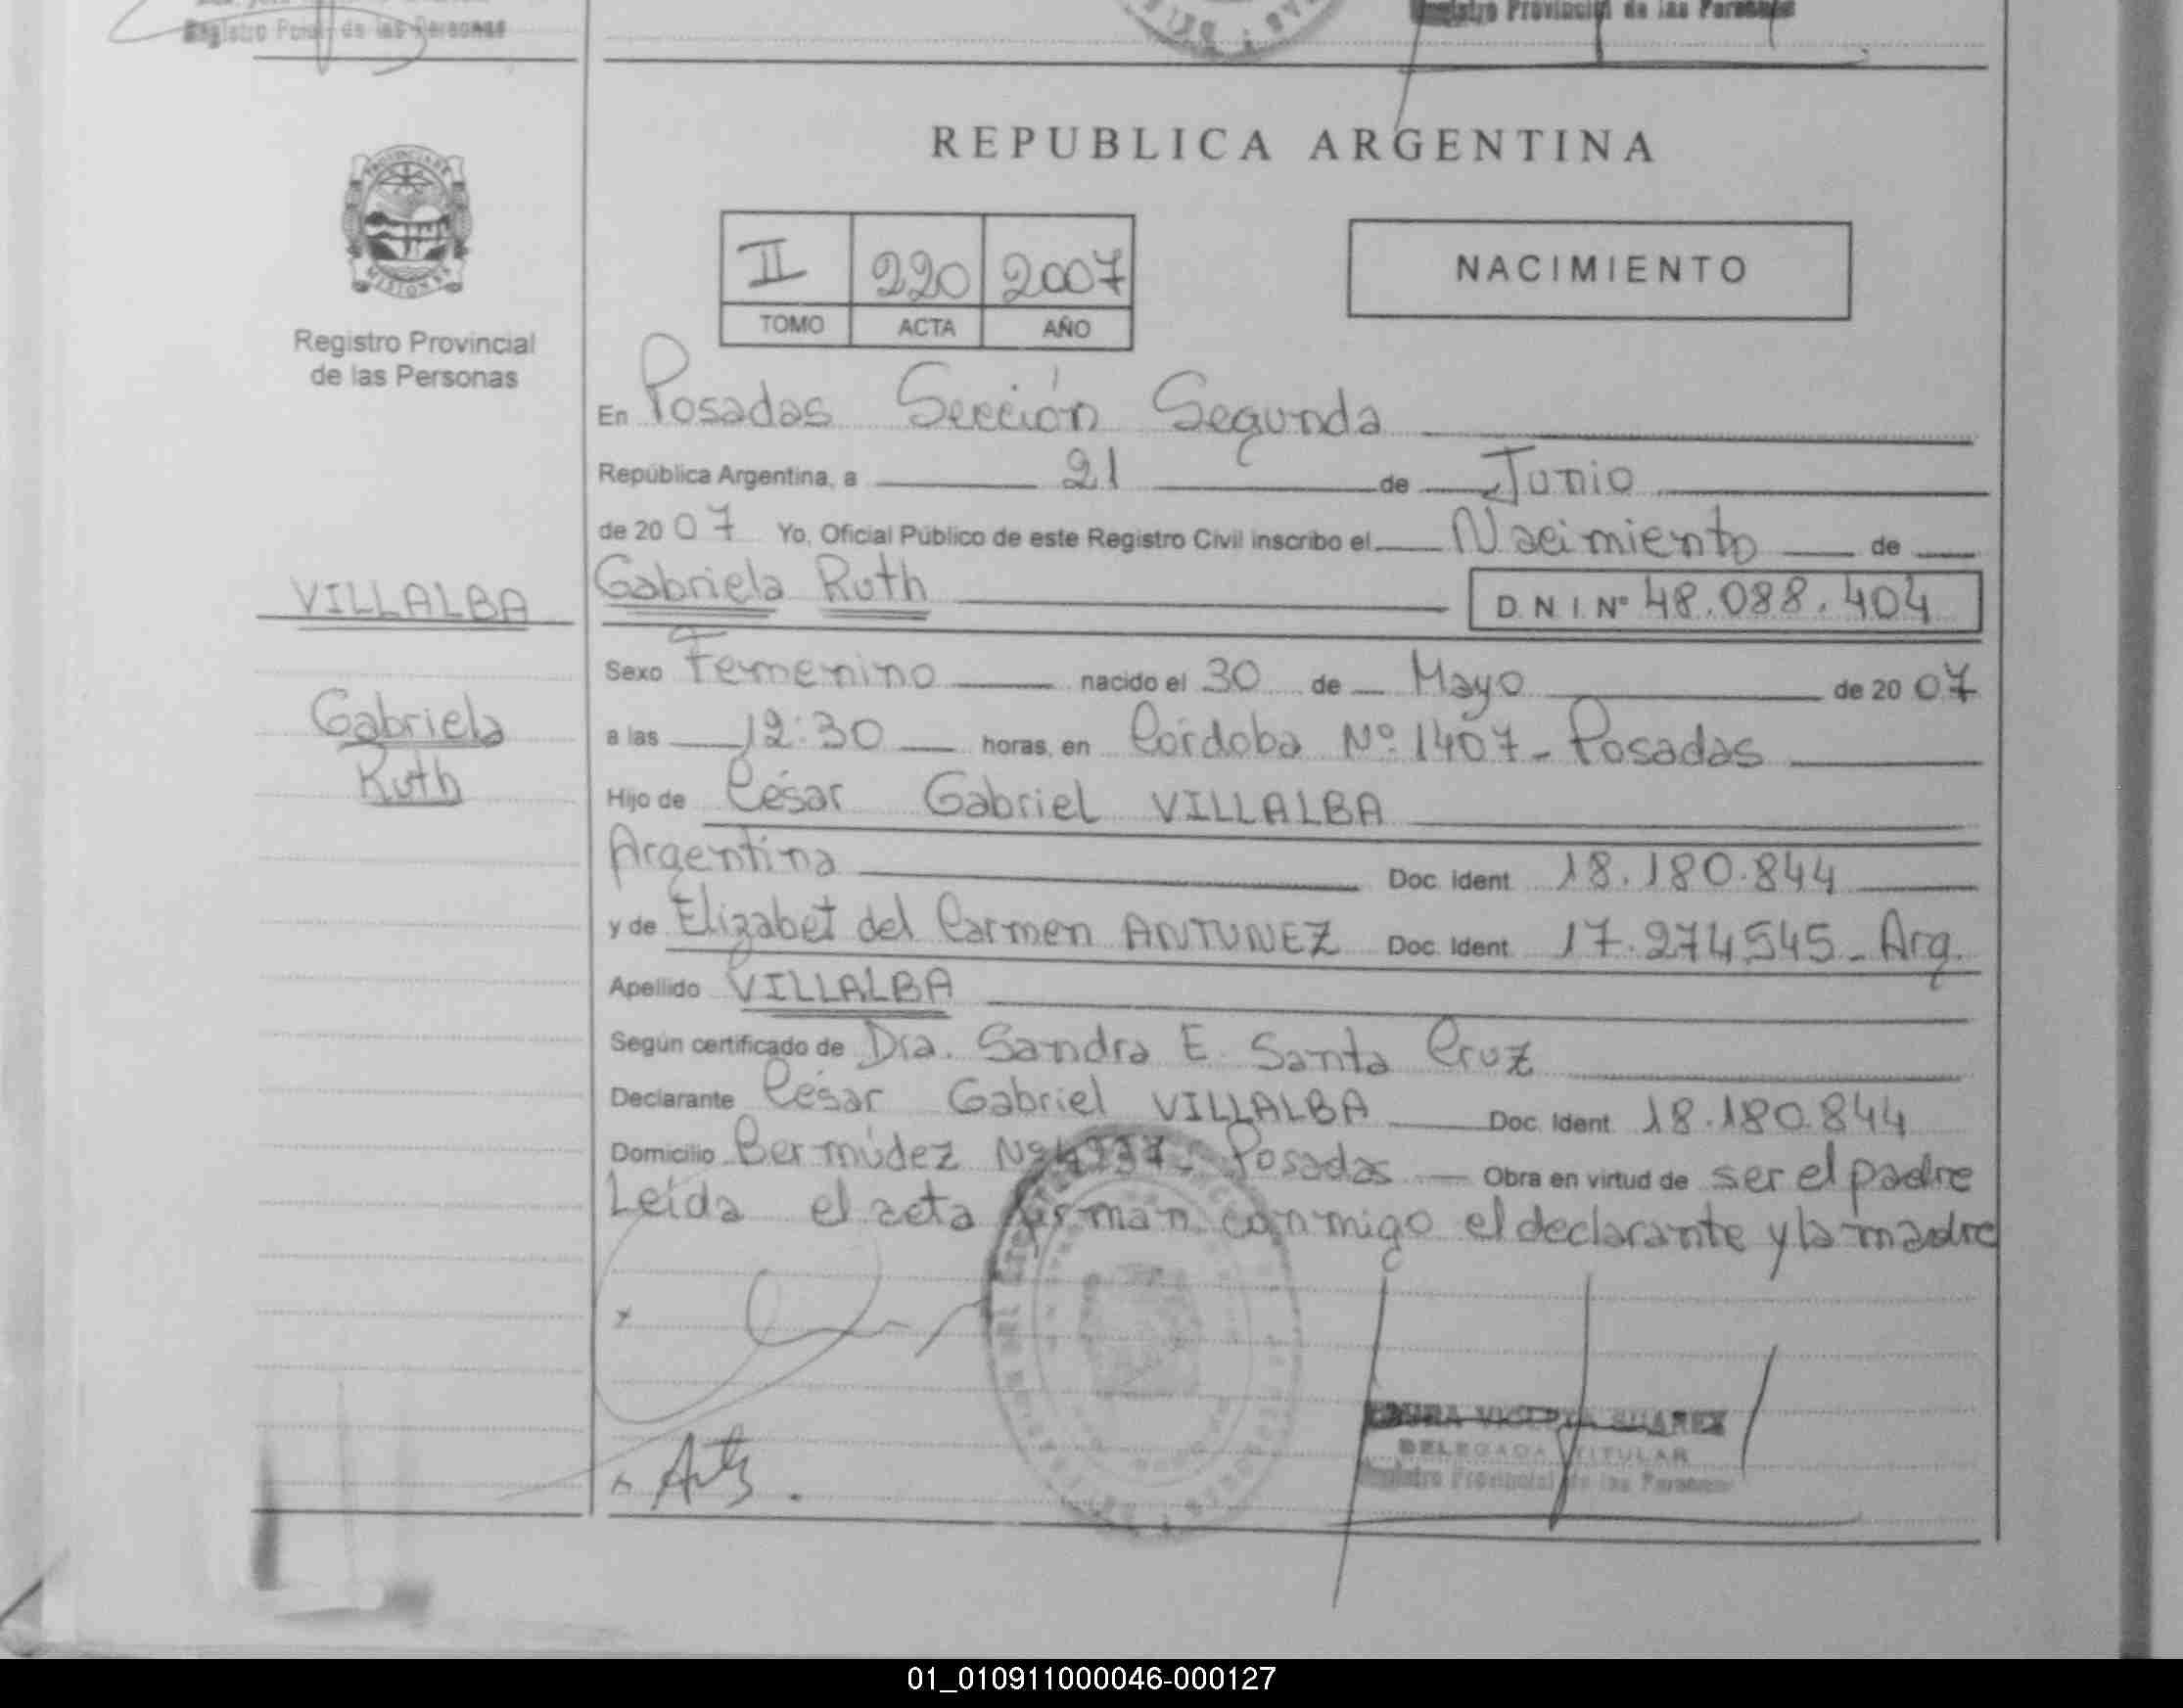 Registro Provincial de las Personas
REPUBLICA ARGENTINA
PROVINCIA DE
MISIONES
Registro Provincial
de las Personas
II 220 2007
TOMO ACTA AÑO
NACIMIENTO
En Posadas Sección Segunda
República Argentina, a 21 de Junio
de 2007 Yo, Oficial Público de este Registro Civil inscribo el Nacimiento de
VILLALBA
Gabriela Ruth D.N.I. Nº 48.088.404
Gabriela
Ruth
Sexo Femenino nacido el 30 de Mayo de 2007
a las 12:30 horas, en Córdoba Nº 1407 - Posadas
Hijo de César Gabriel VILLALBA
Argentina Doc. Ident. 18.180.844
y de Elizabet del Carmen ANTUNEZ Doc. Ident. 17.274.545 - Arg.
Apellido VILLALBA
Según certificado de Dra. Sandra E. Santa Cruz
Declarante César Gabriel VILLALBA Doc. Ident. 18.180.844
Domicilio Bermúdez Nº Posadas Obra en virtud de ser el padre
Leída el acta firman conmigo el declarante y la madre
SUAREZ
DELEGADA TITULAR
Registro Provincial de las Personas
01_010911000046-000127